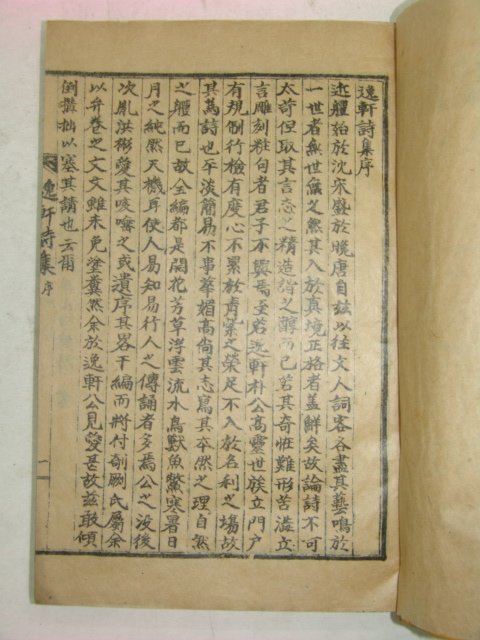 逸軒詩集序
近體始於沈宋盛於晚唐自玆以往文人詞客各盡其藝鳴於
一世者無世無之然其入於眞境正格者盖鮮矣故論詩不可
太苛但取其言志之精造詣之醇而已若其奇恠難形苦澁立
言雕刻粧句者君子不與焉至若逸軒朴公高靈世族立門戶
有規制行檢有度心不累於靑紫之榮足不入於名利之塲故
其爲詩也平淡簡易不事華媚高尙其志寫其卒然之理自然
之軆而已故全編都是閑花芳草浮雲流水鳥獸魚鱉寒暑日
月之純然天機耳使人易知易行人之傳誦者多焉公之没後
次胤洪彬愛其咳嚏之或遺序其畧干編而將付剞劂氏屬余
以弁卷之文文雖未免塗糞然余於逸軒公見愛甚故玆敢傾
倒構拙以塞其請也云爾
逸軒詩集 序
一